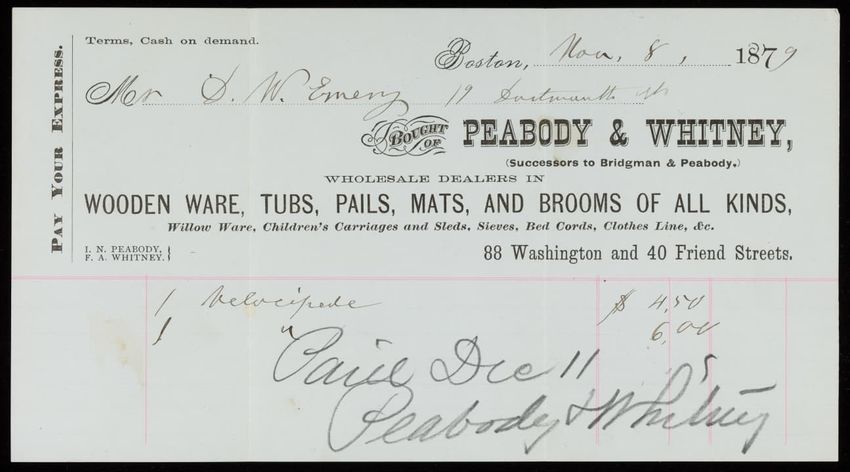 Terms, Cash on demand.
Boston, Nov, 8, 1879
Mr D. W. Emery 19 Dartmouth St
BOUGHT OF PEABODY & WHITNEY,
(Successors to Bridgman & Peabody.)
WHOLESALE DEALERS IN
WOODEN WARE, TUBS, PAILS, MATS, AND BROOMS OF ALL KINDS,
Willow Ware, Children's Carriages and Sleds, Sieves, Bed Cords, Clothes Line, &c.
I. N. PEABODY,
F. A. WHITNEY.
88 Washington and 40 Friend Streets.
PAY YOUR EXPRESS.
1 Velocipede $ 4.50
1 " 6.00
Paid Dec 11
Peabody & Whitney